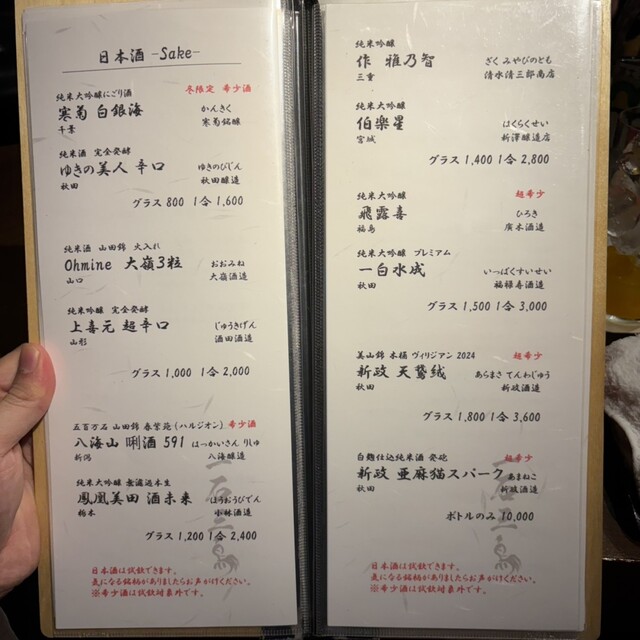 日本酒 -Sake-
純米大吟醸にごり酒 冬限定 希少酒
寒菊 白銀海 かんきく
千葉 寒菊銘醸
純米酒 完全発酵
ゆきの美人 辛口 ゆきのびじん
秋田 秋田醸造
グラス 800 1合 1,600
純米酒 山田錦 火入れ
Ohmine 大嶺3粒 おおみね
山口 大嶺酒造
純米吟醸 完全発酵
上喜元 超辛口 じょうきげん
山形 酒田酒造
グラス 1,000 1合 2,000
五百万石 山田錦 春紫苑(ハルジオン) 希少酒
八海山 唎酒 591 はっかいさん りしゅ
新潟 八海醸造
純米大吟醸 無濾過本生
鳳凰美田 酒未来 ほうおうびでん
栃木 小林酒造
グラス 1,200 1合 2,400
日本酒は試飲できます。
気になる銘柄がありましたらお声がけください。
※希少酒は試飲対象外です。
純米吟醸
作 雅乃智 ざく みやびのとも
三重 清水清三郎商店
純米大吟醸
伯楽星 はくらくせい
宮城 新澤醸造店
グラス 1,400 1合 2,800
純米大吟醸 超希少
飛露喜 ひろき
福島 廣木酒造
純米大吟醸 プレミアム
一白水成 いっぱくすいせい
秋田 福禄寿酒造
グラス 1,500 1合 3,000
美山錦 木桶 ヴィリジアン 2024 超希少
新政 天鵞絨 あらまさ てんわじゅう
秋田 新政酒造
グラス 1,800 1合 3,600
白麹仕込純米酒 発砲 超希少
新政 亜麻猫スパーク あまねこ
秋田 新政酒造
ボトルのみ 10,000
日本酒は試飲できます。
気になる銘柄がありましたらお声がけください。
※希少酒は試飲対象外です。